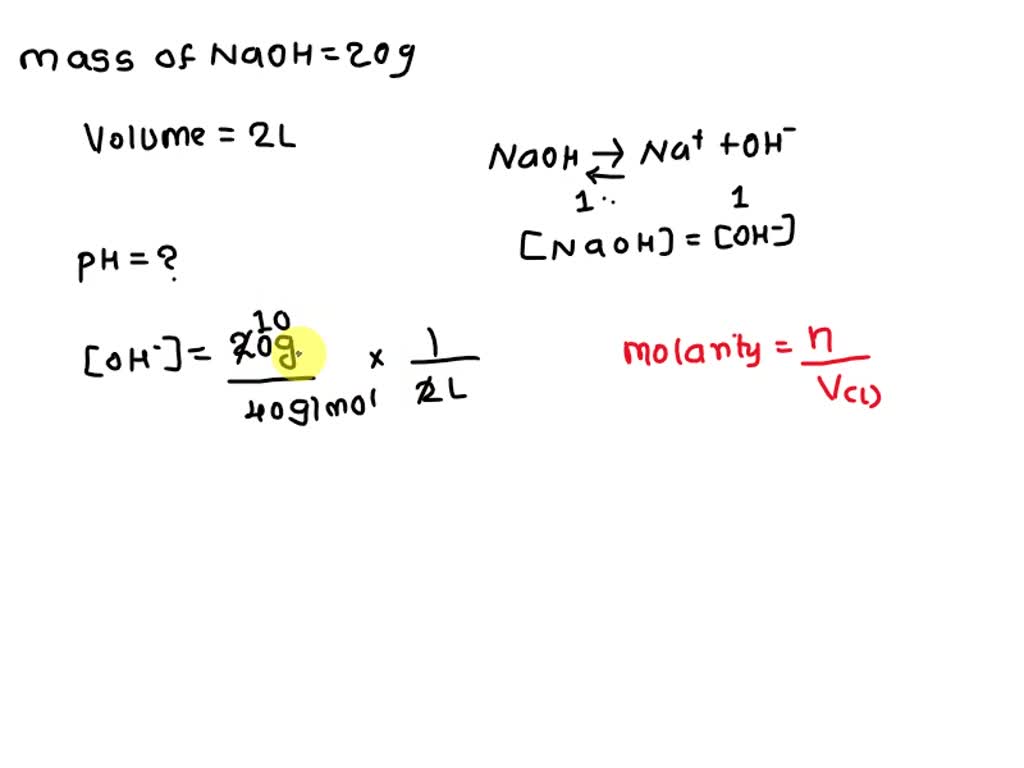 mass of NaOH = 20g
Volume = 2L
NaOH ⇌ Na⁺ + OH⁻
1 ·· 1
[NaOH] = [OH⁻]
pH = ?
10
[OH⁻] = 20g. × 1
40g/mol 2L
molarity = n
V(L)